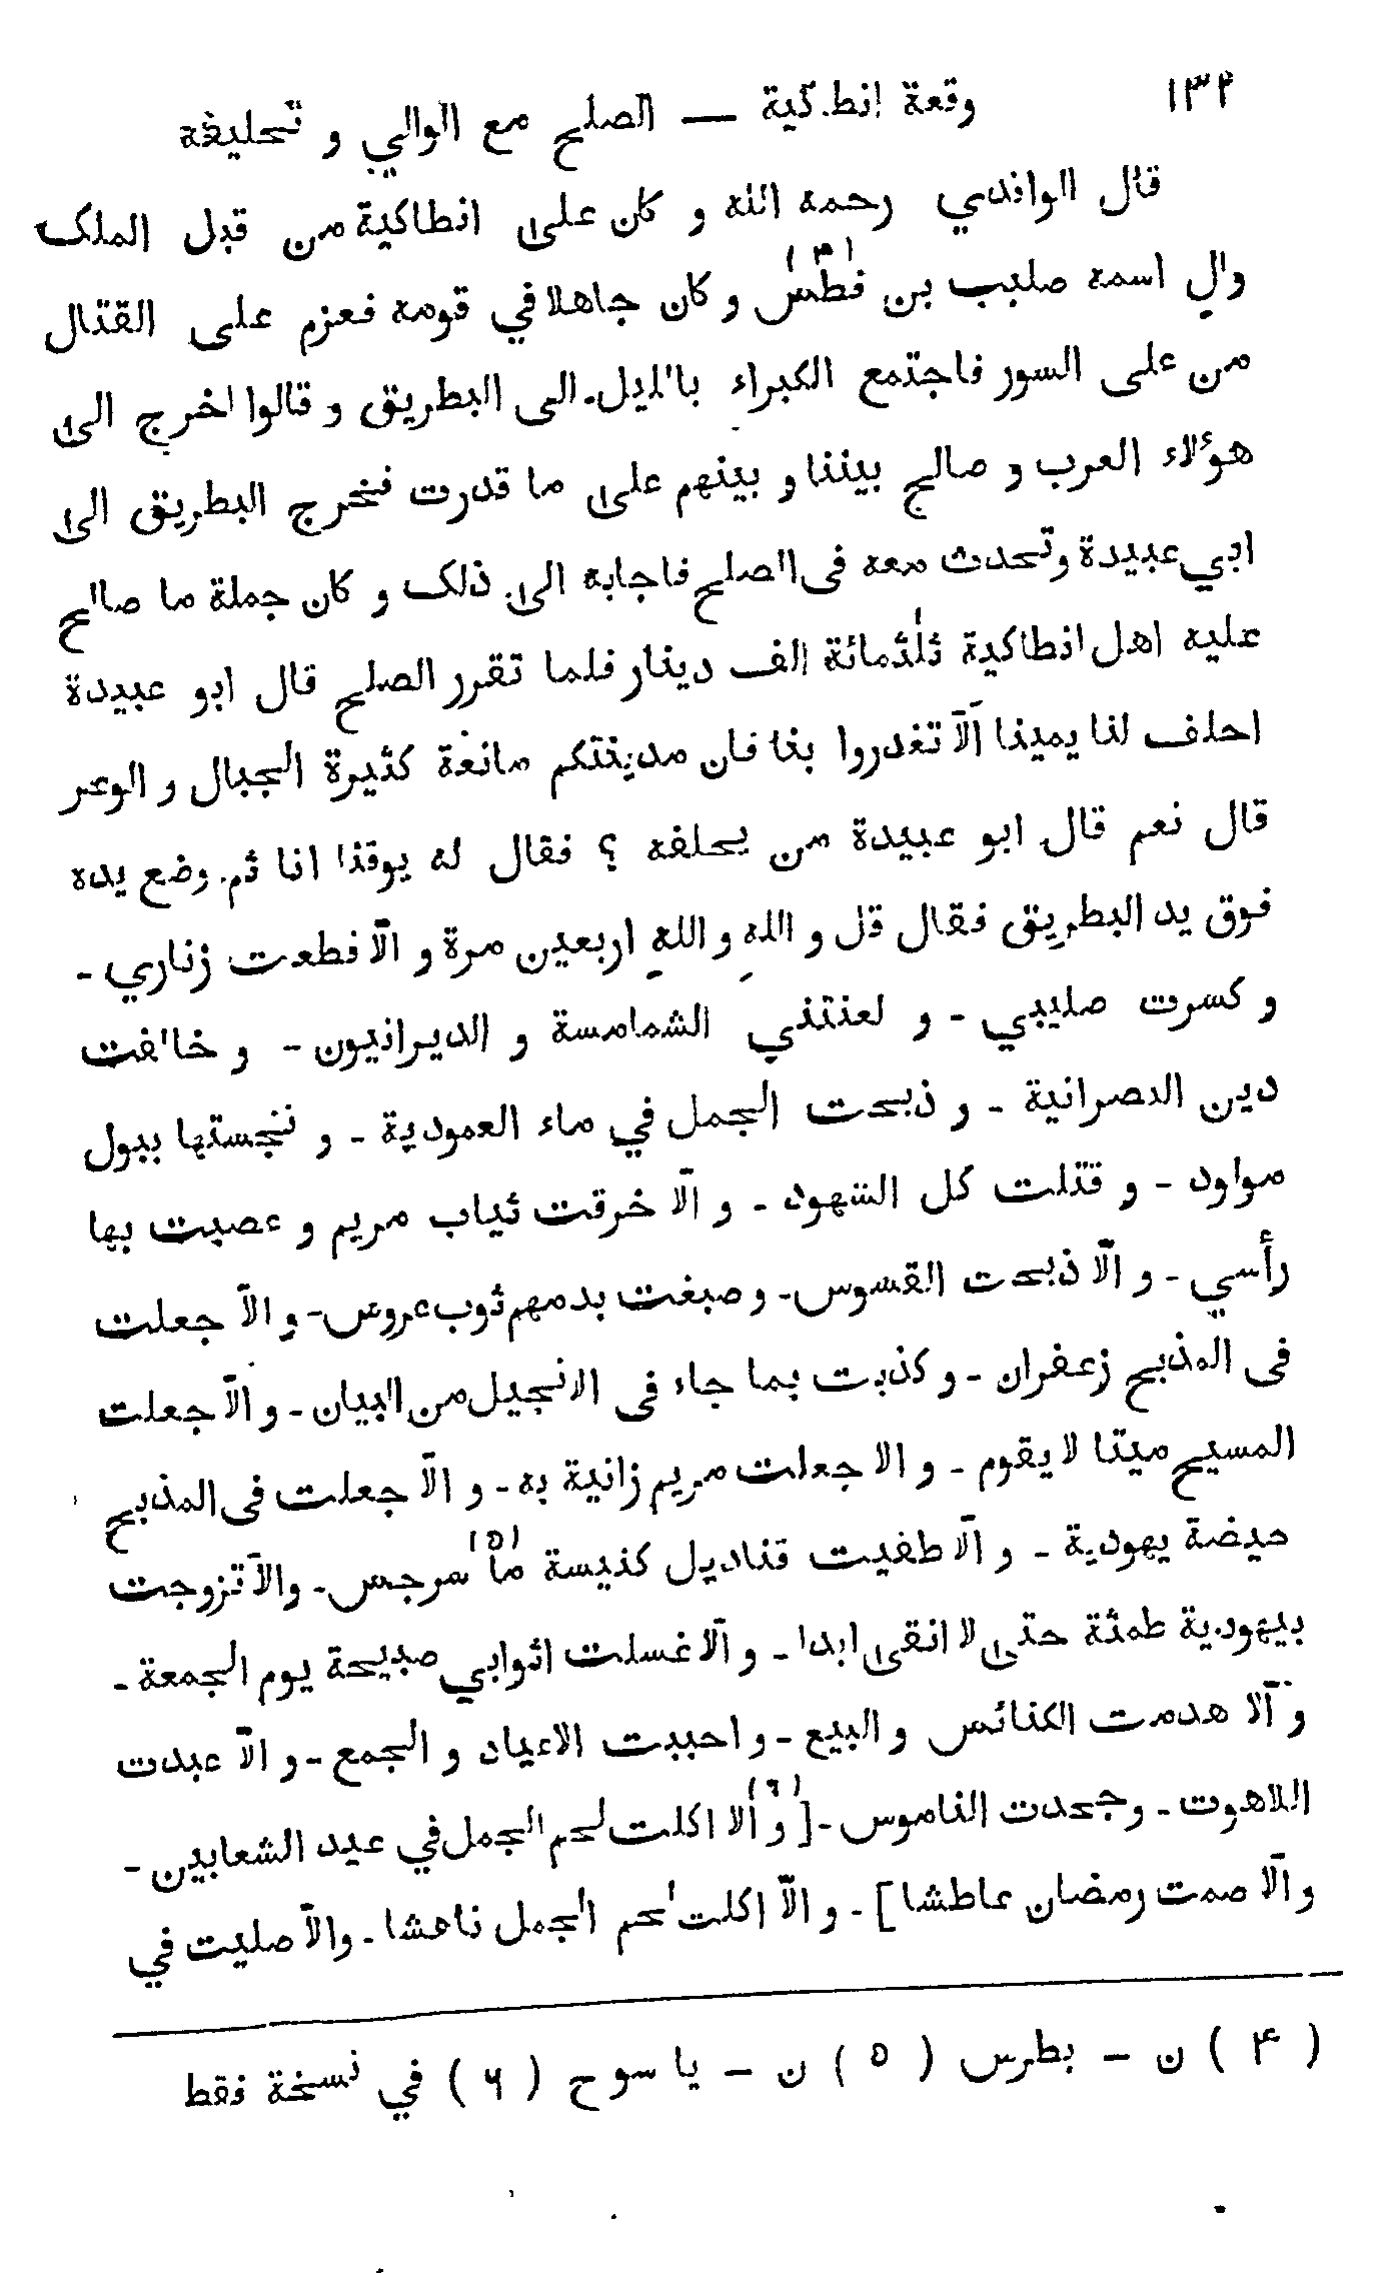 ١٣٢ وقعة انطاكية — الصلح مع الوالي و تحليفه
قال الواقدي رحمه الله و كان على انطاكية من قبل الملك
والٍ اسمه صليب بن فطس (۴) و كان جاهلا في قومه فعزم على القتال
من على السور فاجتمع الكبراء بالليل الى البطريق و قالوا اخرج الى
هؤلاء العرب و صالح بيننا و بينهم على ما قدرت فخرج البطريق الى
ابي عبيدة و تحدث معه فى الصلح فاجابه الى ذلك و كان جملة ما صالح
عليه اهل انطاكية ثلثمائة الف دينار فلما تقرر الصلح قال ابو عبيدة
احلف لنا يمينا الّا تغدروا بنا فان مدينتكم مانعة كثيرة الجبال و الوعر
قال نعم قال ابو عبيدة من يحلفه ؟ فقال له يوقنا انا ثم وضع يده
فوق يد البطريق فقال قل و اللهِ و اللهِ اربعين مرة و الّا قطعت زناري -
و كسرت صليبي - و لعنتني الشمامسة و الديرانيون - و خالفت
دين النصرانية - و ذبحت الجمل في ماء العمودية - و نجستها ببول
مولود - و قتلت كل الشهود - و الّا خرقت ثياب مريم و عصبت بها
رأسي - و الّا ذبحت القسوس - و صبغت بدمهم ثوب عروس - و الّا جعلت
فى المذبح زعفران - و كذبت بما جاء فى الانجيل من البيان - و الّا جعلت
المسيح ميتا لا يقوم - و الا جعلت مريم زانية به - و الّا جعلت فى المذبح
حيضة يهودية - و الّا طفيت قناديل كنيسة ما (۵) سرجس - والّا تزوجت
بيهودية طمثة حتى لا انقى ابدا - و الّا غسلت اثوابي صبيحة يوم الجمعة -
و الّا هدمت الكنائس و البيع - و احببت الاعياد و الجمع - و الّا عبدت
اللاهوت - و جحدت الناموس - [ (٦) و الّا اكلت لحم الجمل في عيد الشعابين -
و الّا صمت رمضان عاطشا ] - و الّا اكلت لحم الجمل ناهشا - والّا صليت في
( ۴ ) ن — بطرس ( ۵ ) ن — يا سوح ( ۶ ) في نسخة فقط